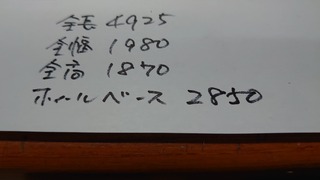 全長 4925
全幅 1980
全高 1870
ホイールベース 2850